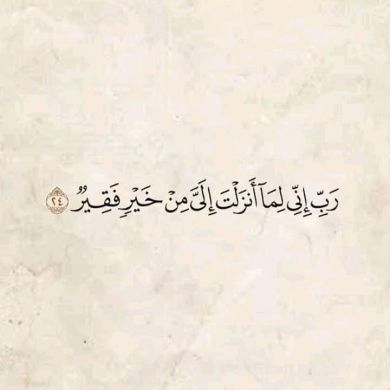 رَبِّ إِنِّي لِمَآ أَنزَلْتَ إِلَيَّ مِنْ خَيْرٍ فَقِيرٌ ٢٤